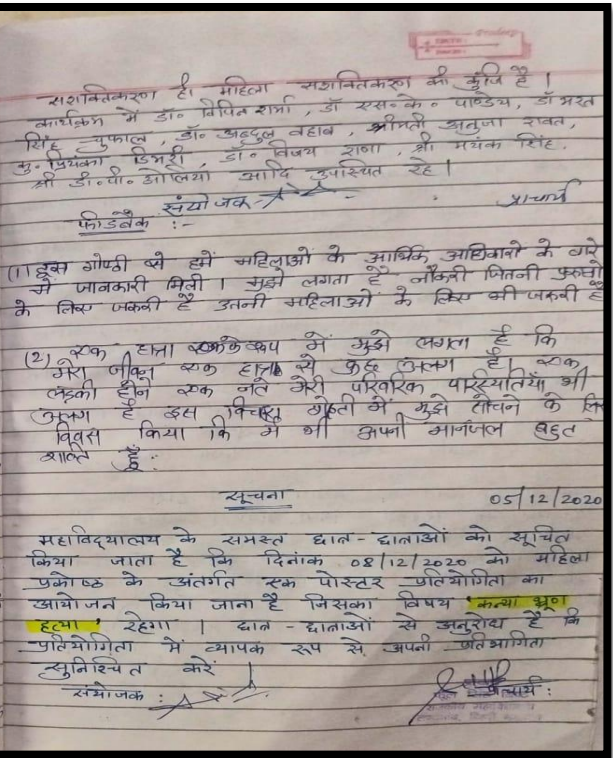 सशक्तिकरण ही महिला सशक्तिकरण की कुंजि है।
कार्यक्रम में डॉ० विपिन शर्मा, डॉ एस० के० पाण्डेय, डॉ भरत
सिंह चुफाल, डॉ० अब्दुल वहाब, श्रीमती अनुजा रावत,
कु० प्रियंका डिमरी, डॉ० विजय राणा, श्री मयंक सिंह,
श्री डी०पी० डोलिया आदि उपस्थित रहे।
संयोजक- प्राचार्य
फीडबैक :-
(1) इस गोष्ठी से हमें महिलाओं के आर्थिक अधिकारो के बारे
में जानकारी मिली। मुझे लगता है नौकरी जितनी पुरूषो
के लिए जरूरी है उतनी महिलाओं के लिए भी जरूरी है
(2) एक छात्रा एक रूप में मुझे लगता है कि
मेरा जीवन एक छात्र से कुछ अलग है। एक
लड़की होने एक नते मेरी परिवारिक पारिस्थितियाँ भी
अलग है इस विचार गोष्ठी में मुझे सोचने के लिए
विवस किया कि में भी अपनी बहुत
शाक्ति हूँ:
सूचना 05/12/2020
महाविद्यालय के समस्त छात्र-छात्राओं को सूचित
किया जाता है कि दिनांक 08/12/2020 को महिला
प्रकोष्ठ के अंतर्गत एक पोस्टर प्रतियोगिता का
आयोजन किया जाना है जिसका विषय 'कन्या भ्रूण
हत्या' रहेगा। छात्र-छात्राओं से अनुरोध है कि
प्रतियोगिता में व्यापक रूप से अपनी प्रतिभागिता
सुनिश्चित करें
संयोजक : प्राचार्य :